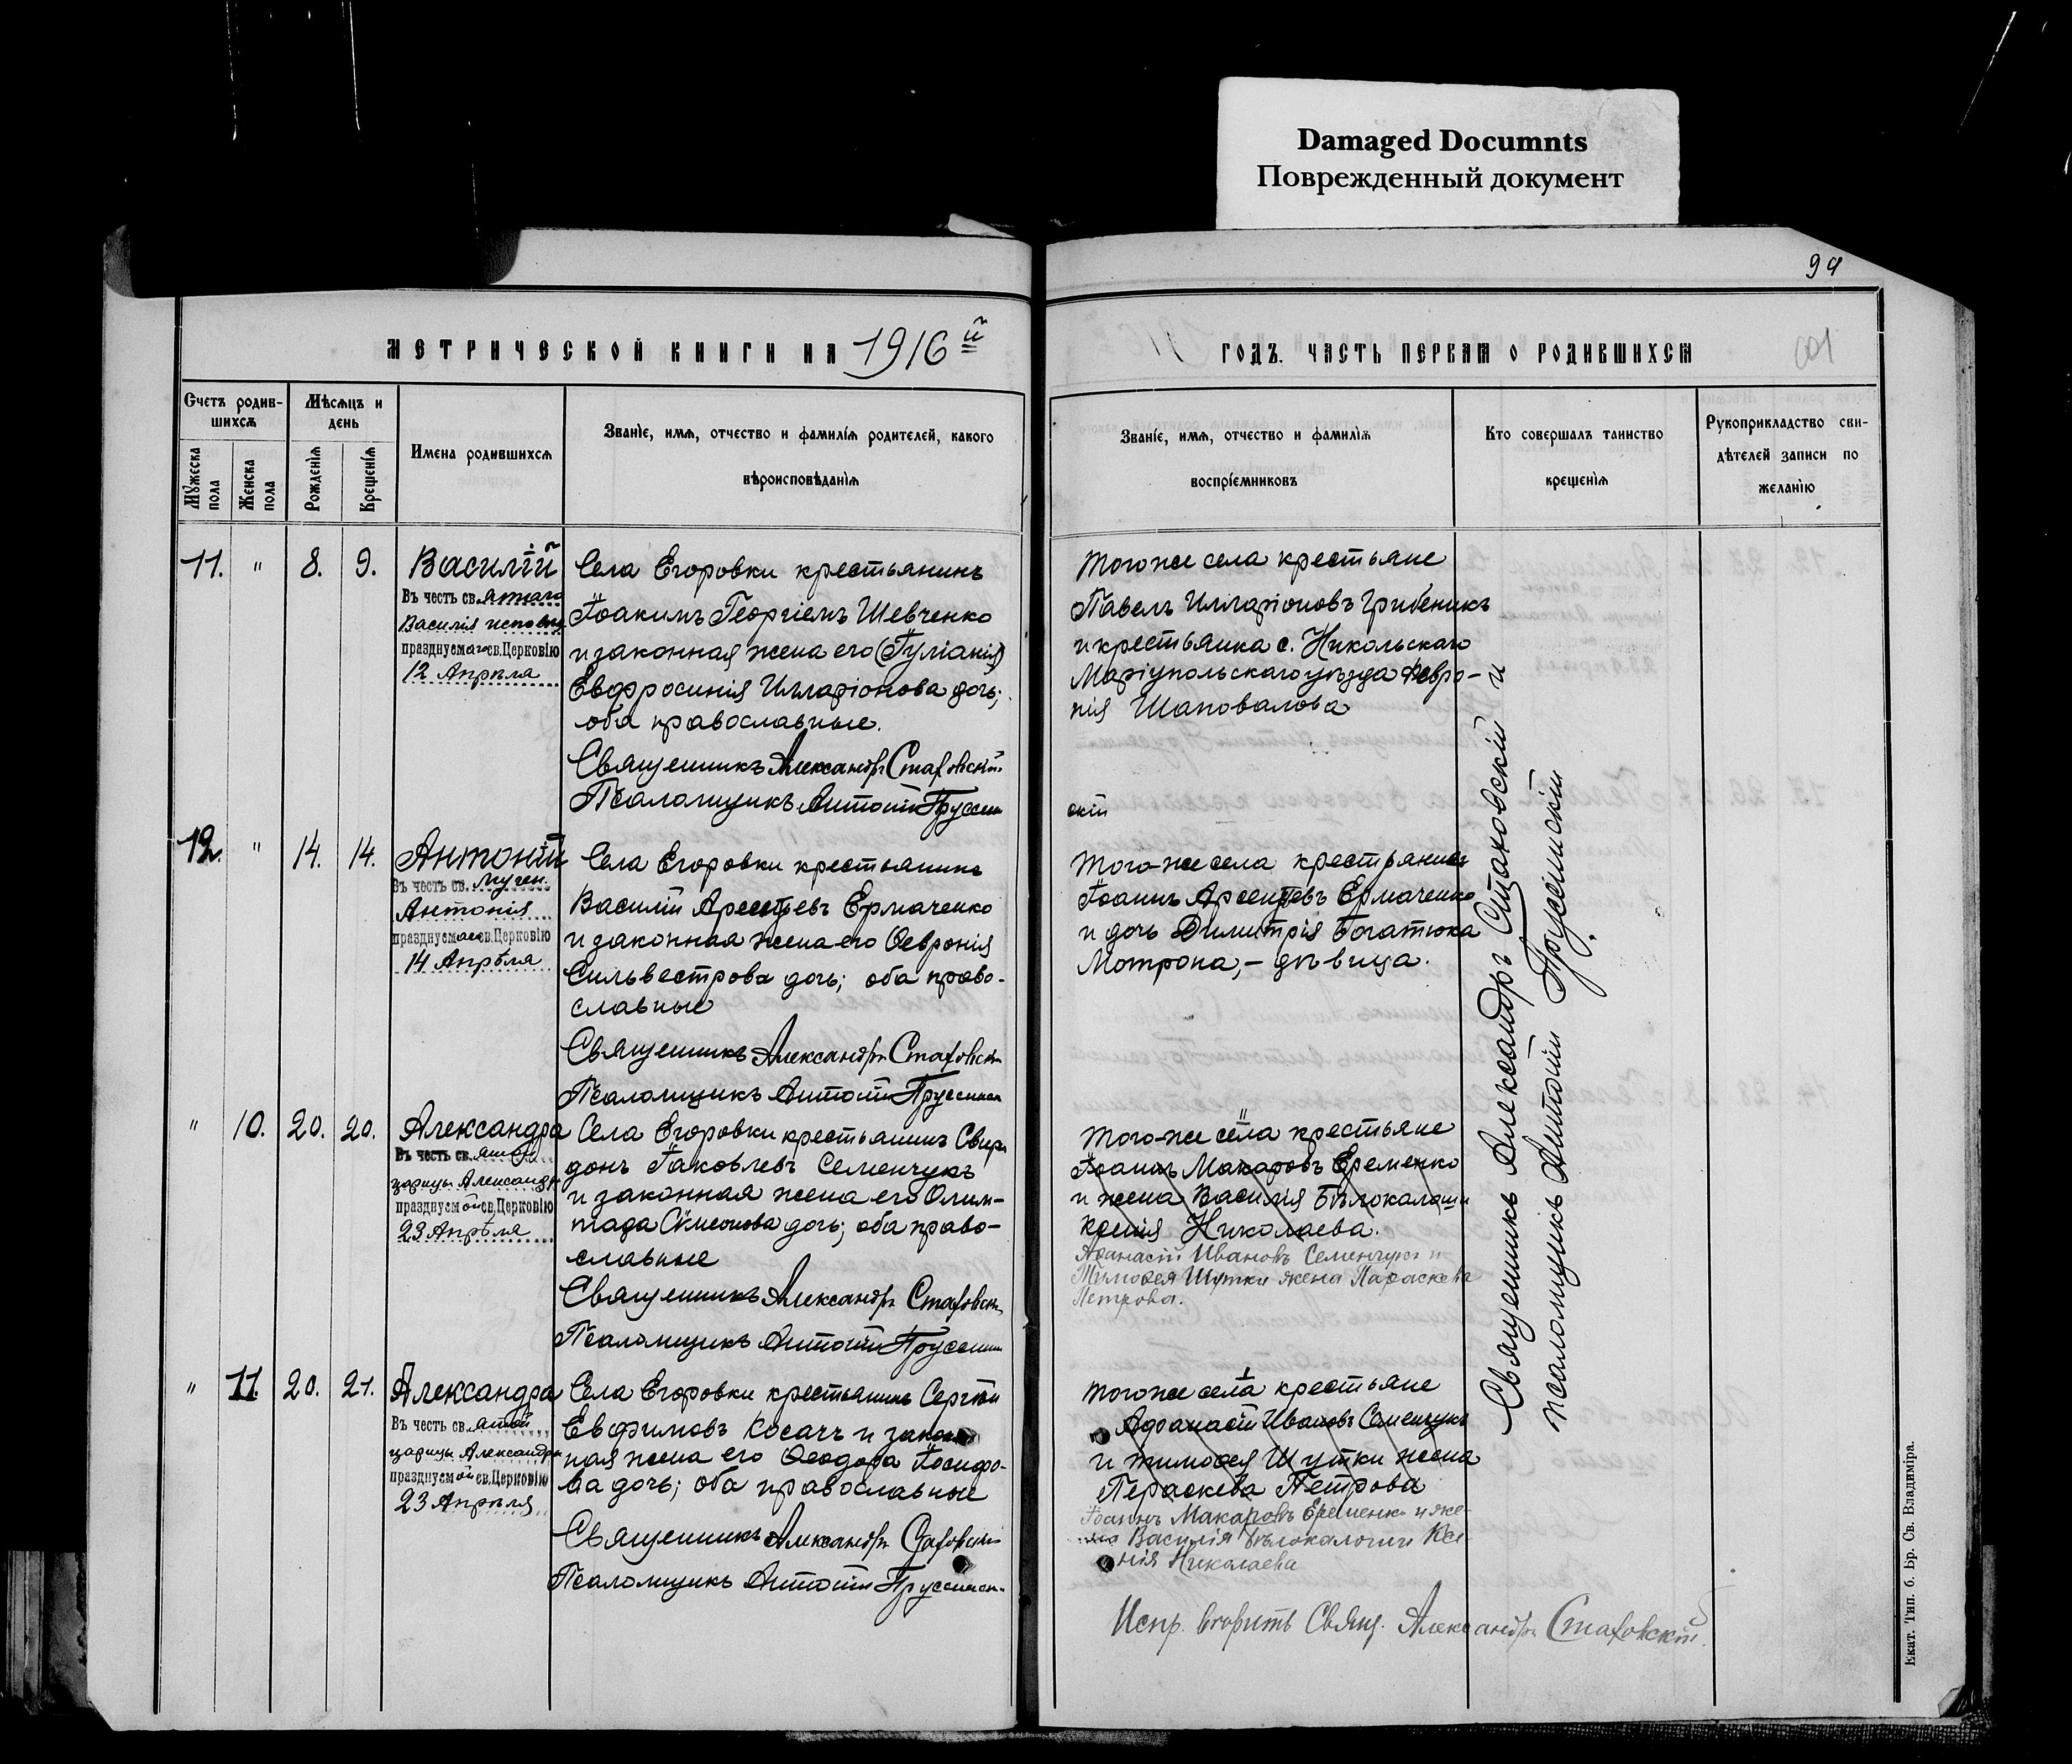 Damaged Documnts
Поврежденный документ
МЕТРИЧЕСКОЙ КНИГИ НА 1916 й
Счетъ родив-
шихся
Мужеска пола
Женска пола
Мѣсяцъ и
день
Рожденія
Крещенія
Имена родившихся
Званіе, имя, отчество и фамилія родителей, какого
вѣроисповѣданія
11. " 8. 9.
Василій
Въ честь св. ятаго
Василія исповѣд.
празднуемаго св. Церковію
12 Апрѣля
Села Егоровки крестьянинъ
Іоакимъ Георгіевъ Шевченко
и законная жена его (Іуліанія)
Евфросинія Илларіонова дочь;
оба православные.
Священникъ Александръ Стаховскій
Псаломщикъ Антоній Пруссин
12. " 14. 14.
Антоній
Въ честь св. мучен.
Антонія
празднуемаго св. Церковію
14 Апрѣля
Села Егоровки крестьянинъ
Василій Арсентьевъ Ермаченко
и законная жена его Ѳевронія
Сильвестрова дочь; оба право-
славные
Священникъ Александръ Стаховскій
Псаломщикъ Антоній Пруссинск
" 10. 20. 20.
Александра
Въ честь св. ятой
царицы Александры
празднуемой св. Церковію
23 Апрѣля
Села Егоровки крестьянинъ Свири
донъ Іаковлевъ Семенчукъ
и законная жена его Олим-
піада Сѵмеонова дочь; оба право-
славные
Священникъ Александръ Стаховскій
Псаломщикъ Антоній Пруссинск
" 11. 20. 21.
Александра
Въ честь св. ятой
царицы Александры
празднуемой св. Церковію
23 Апрѣля
Села Егоровки крестьянинъ Сергій
Евфимовъ Косачъ и закон
ная жена его Ѳеодора Іосифо-
ва дочь; оба православные
Священникъ Александръ Стаховскій
Псаломщикъ Антоній Пруссинск
94
ГОДЪ. ЧАСТЬ ПЕРВАЯ О РОДИВШИХСЯ
Званіе, имя, отчество и фамилія
воспріемниковъ
Кто совершалъ таинство
крещенія
Рукоприкладство сви-
дѣтелей записи по
желанію
Того же села крестьяне
Павелъ Илларіоновъ Грибеникъ
и крестьянка с. Никольскаго
Маріупольскаго уѣзда Февро-
нія Шаповалова
скій
Того-же села крестьянинъ
Іоаннъ Арсентьевъ Ермаченко
и дочь Димитрія Богатюка
Мотрона,- дѣвица.
Того-же села крестьяне
Іоаннъ Макаровъ Еременко
и жена Василія Бѣлокалаши
Ксенія Николаева.
Афанасій Ивановъ Семенчукъ и
Тимоѳея Шутки жена Параскева
Петрова.
Того же села крестьяне
Афанасій Ивановъ Семенчукъ
и Тимоѳея Шутки жена
Параскева Петрова
Іоаннъ Макаровъ Еременко и же-
на Василія Бѣлокалоши Ксе-
нія Николаева
Испр. вѣрить Свящ. Александръ Стаховскій.
Священникъ Александръ Стаховскій и
псаломщикъ Антоній Пруссинскій
Екат. Тип. б. Бр. Св. Владиміра.